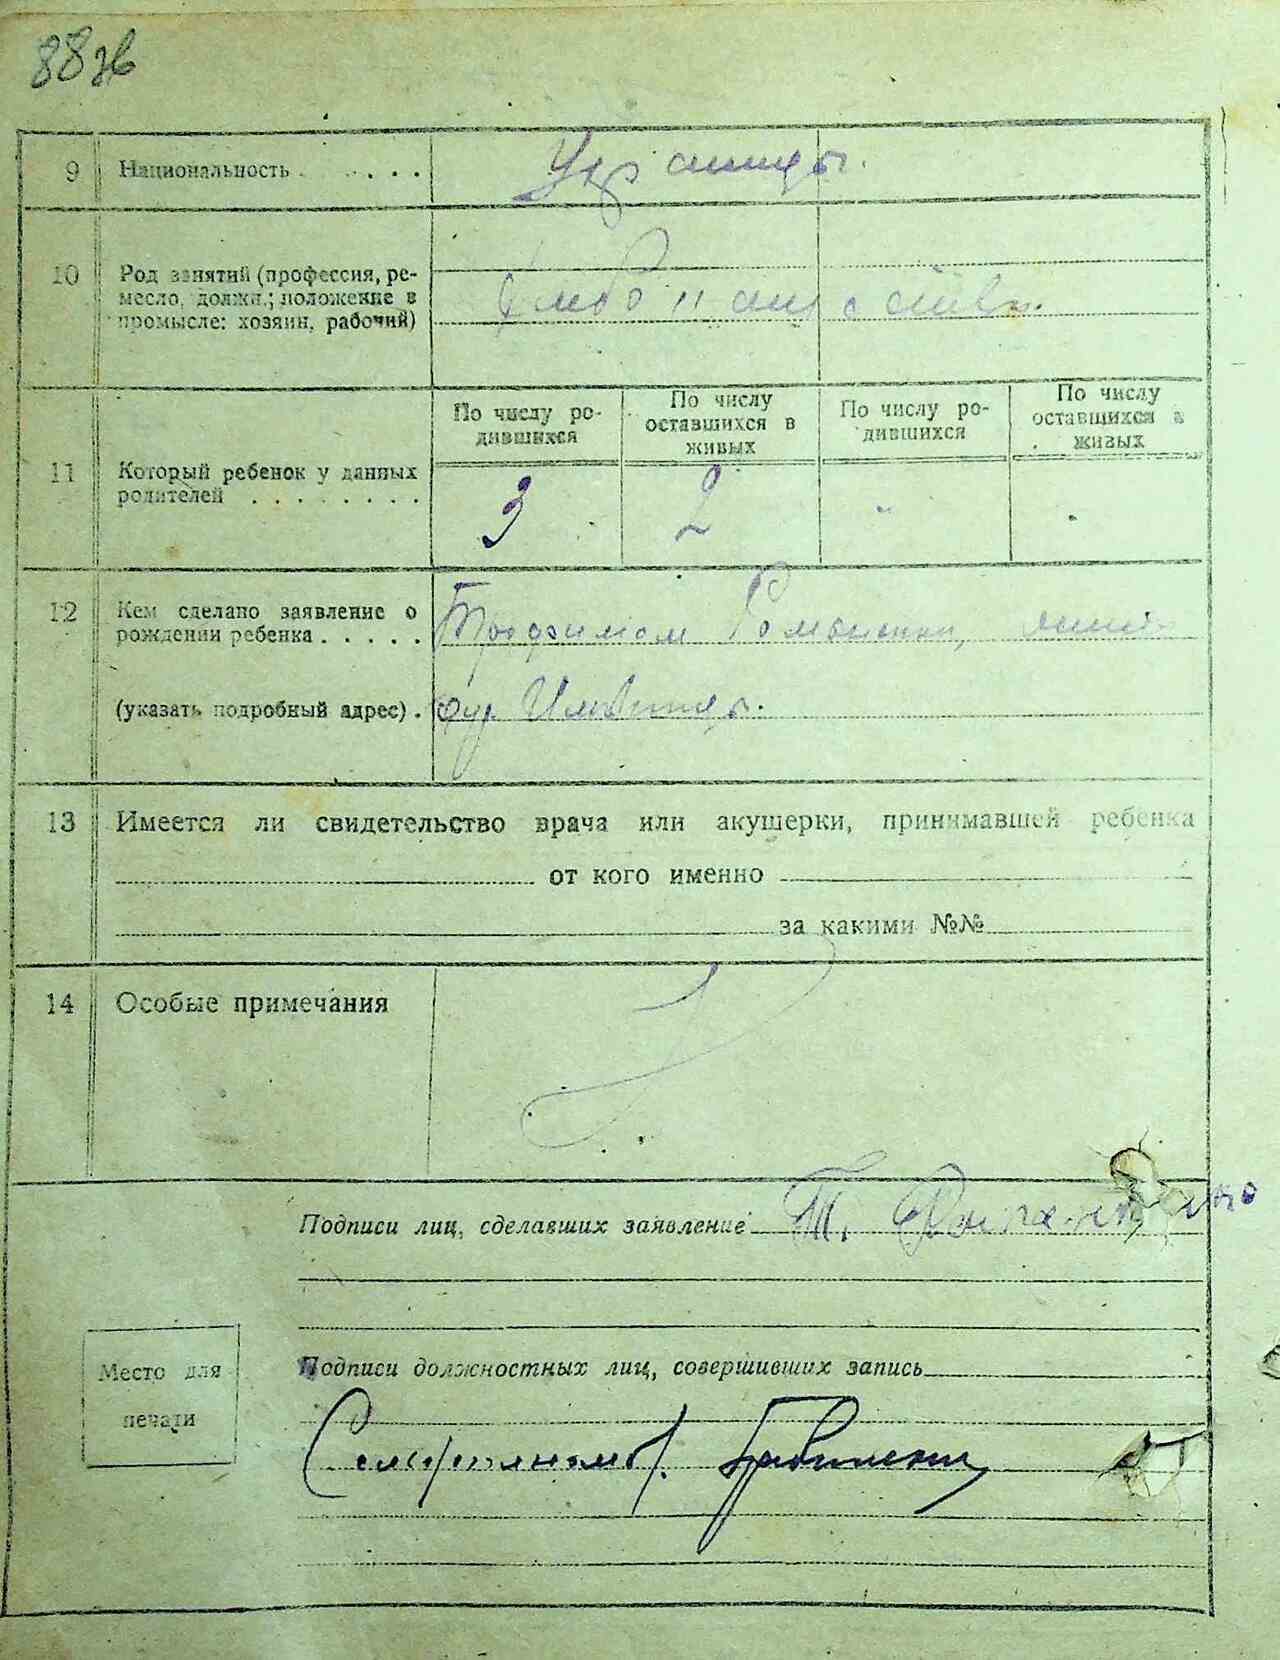 88 зв
9 Национальность . . . . . Украинцы.
10 Род занятий (профессия, ре-
месло, должн.; положение в
промысле: хозяин, рабочий)
Хлебопашество.
11 Который ребенок у данных
родителей . . . . . . . .
По числу ро-
дившихся
По числу
оставшихся в
живых
По числу ро-
дившихся
По числу
оставшихся в
живых
3 2
12 Кем сделано заявление о
рождении ребенка . . . . .
Трофимом
(указать подробный адрес) .
хут.
13 Имеется ли свидетельство врача или акушерки, принимавшей ребенка
от кого именно
за какими №№
14 Особые примечания
Подписи лиц, сделавших заявление Т.
Место для
печати
Подписи должностных лиц, совершивших запись